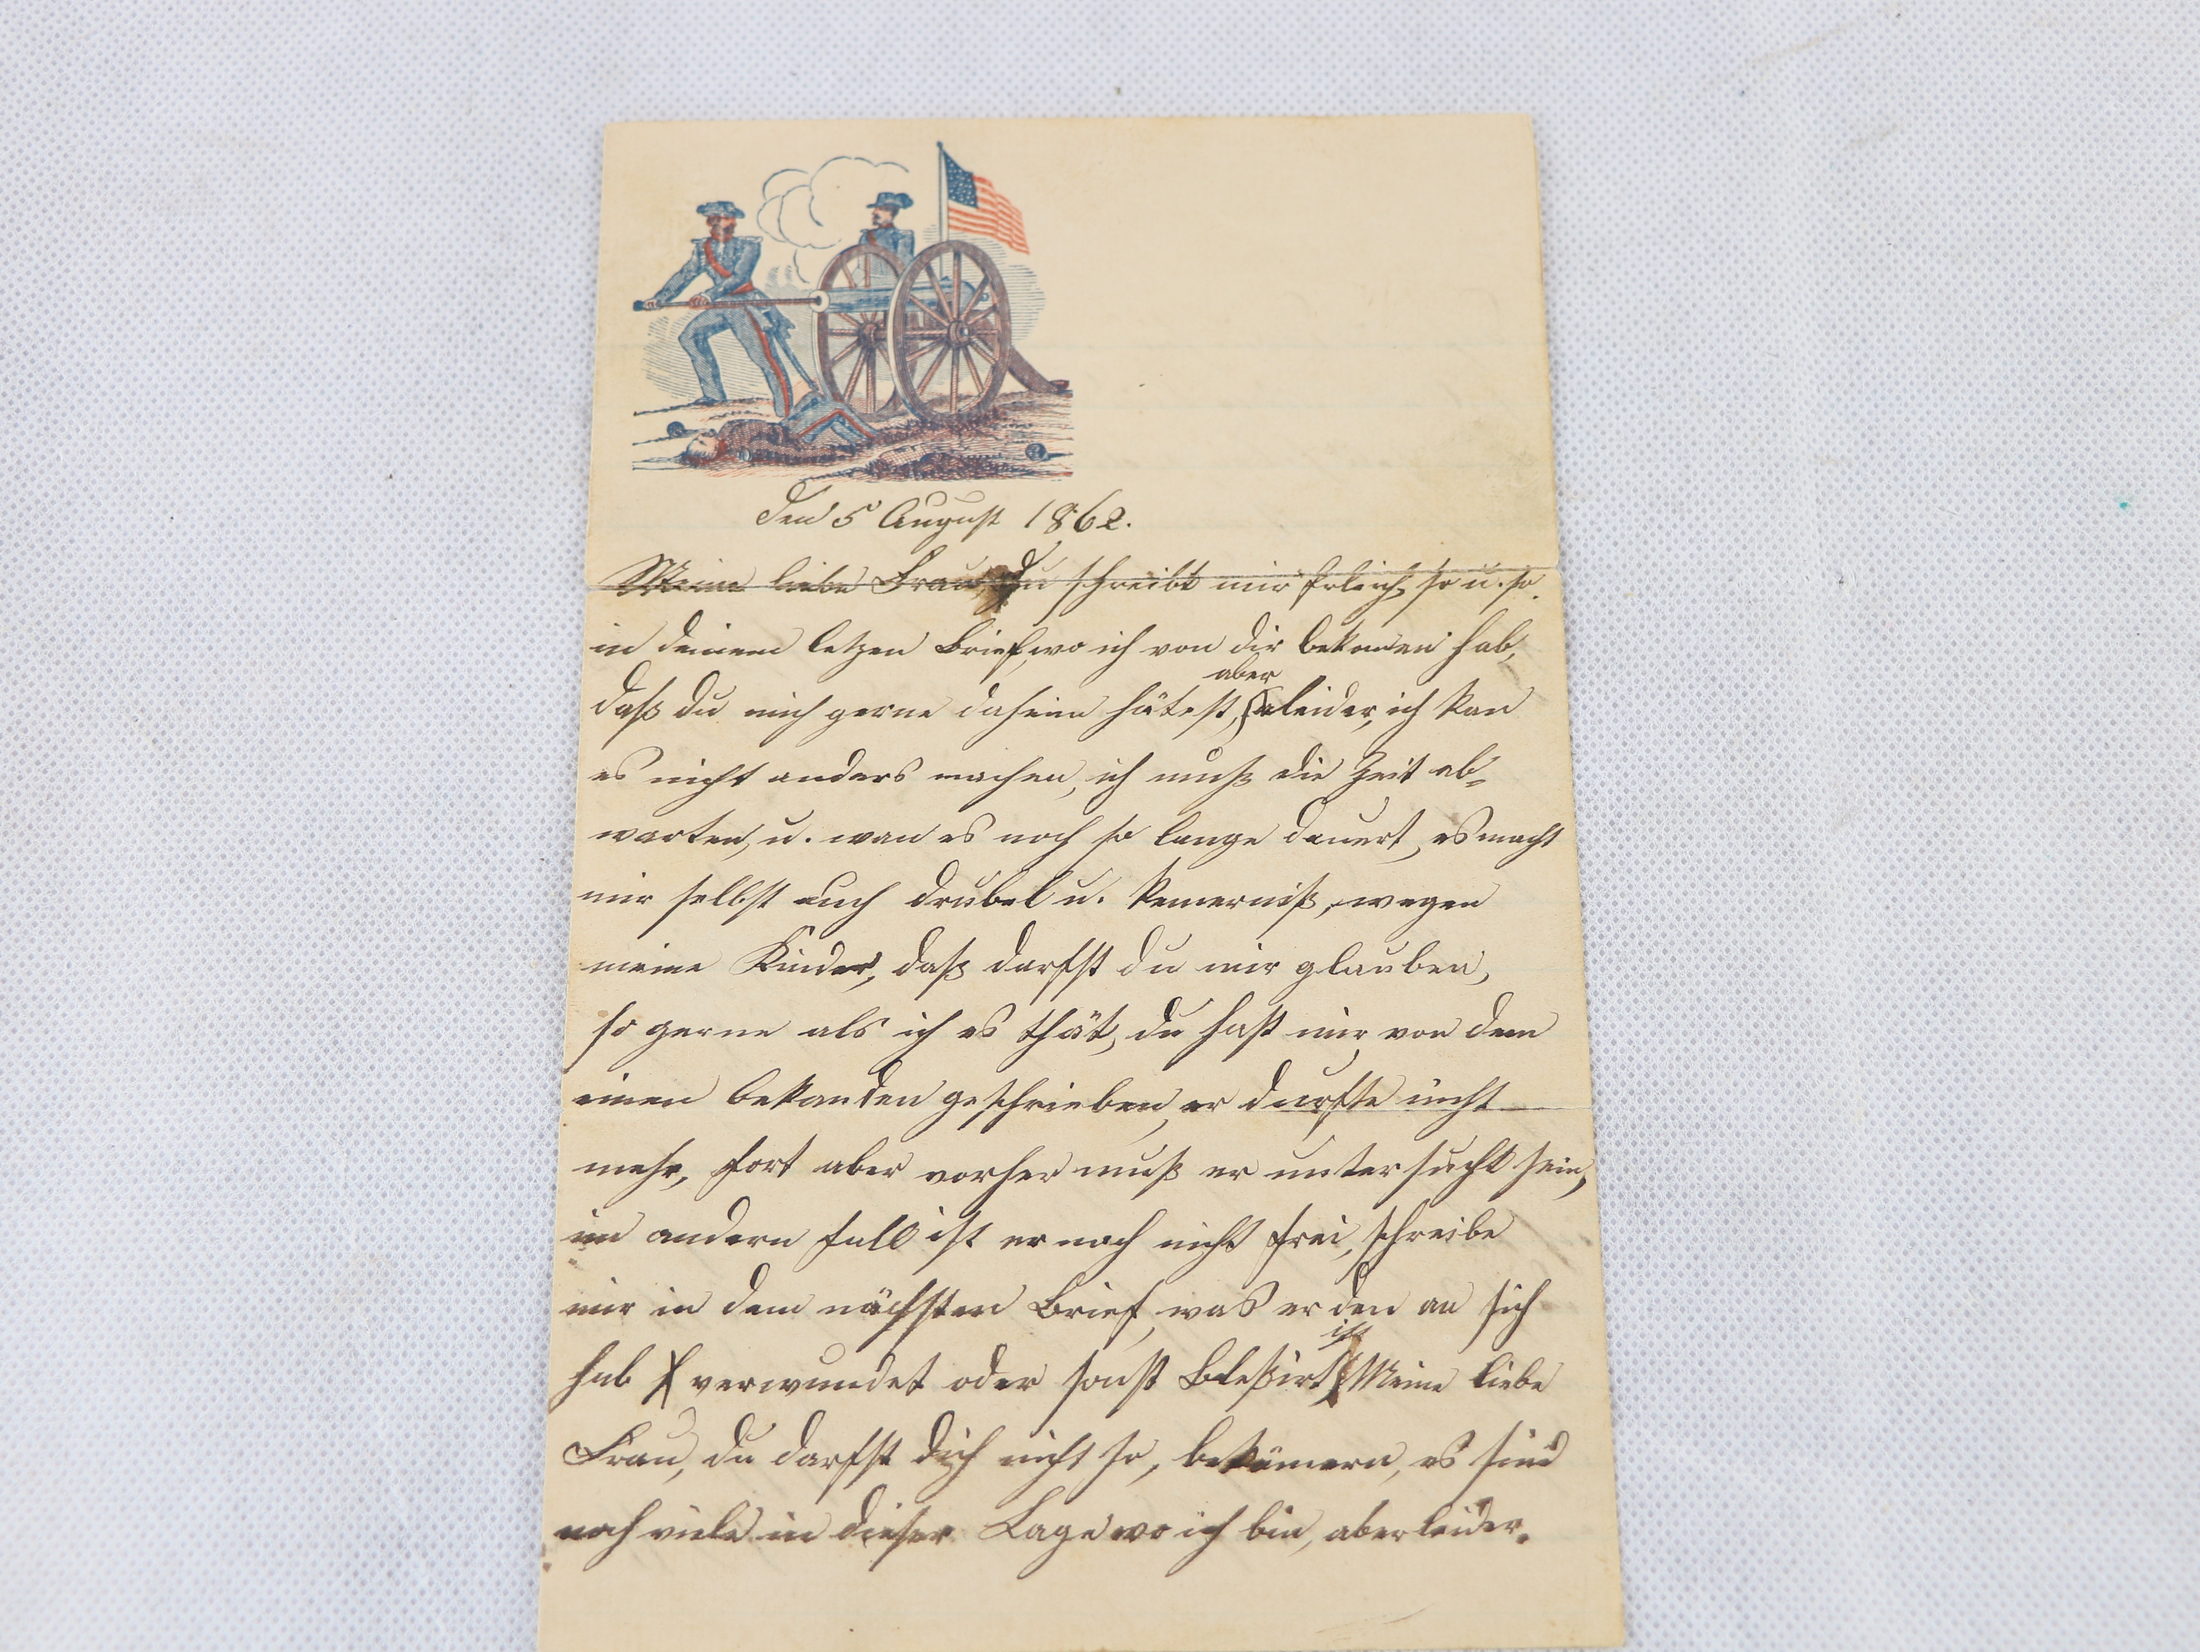 Den 5 August 1862.
Meine liebe Frau, Du schreibt mir so u. so.
in deinem letzen Brief, wo ich von dir bekomen hab,
daß du mich gerne daheim hätest, aber leider, ich kan
es nicht anders machen, ich muß die Zeit ab-
warten, u. wan es noch so lange dauert, es macht
mir selbst auch drubel u. wegen
meine Kinder, daß darfst du mir glauben,
so gerne als ich es thät, du hast mir von dem
einen bekanden geschrieben, er durfte nicht
mehr, fort aber vorher muß er untersucht sein,
im andern fall ist er noch nicht frei, schreibe
mir in dem nächsten Brief, was er den an sich
hab verwundet oder sonst Bleßirt ist Meine liebe
Frau, du darfst dich nicht so, bekümern, es sind
noch viele in dieser Lage wo ich bin, aber leider.